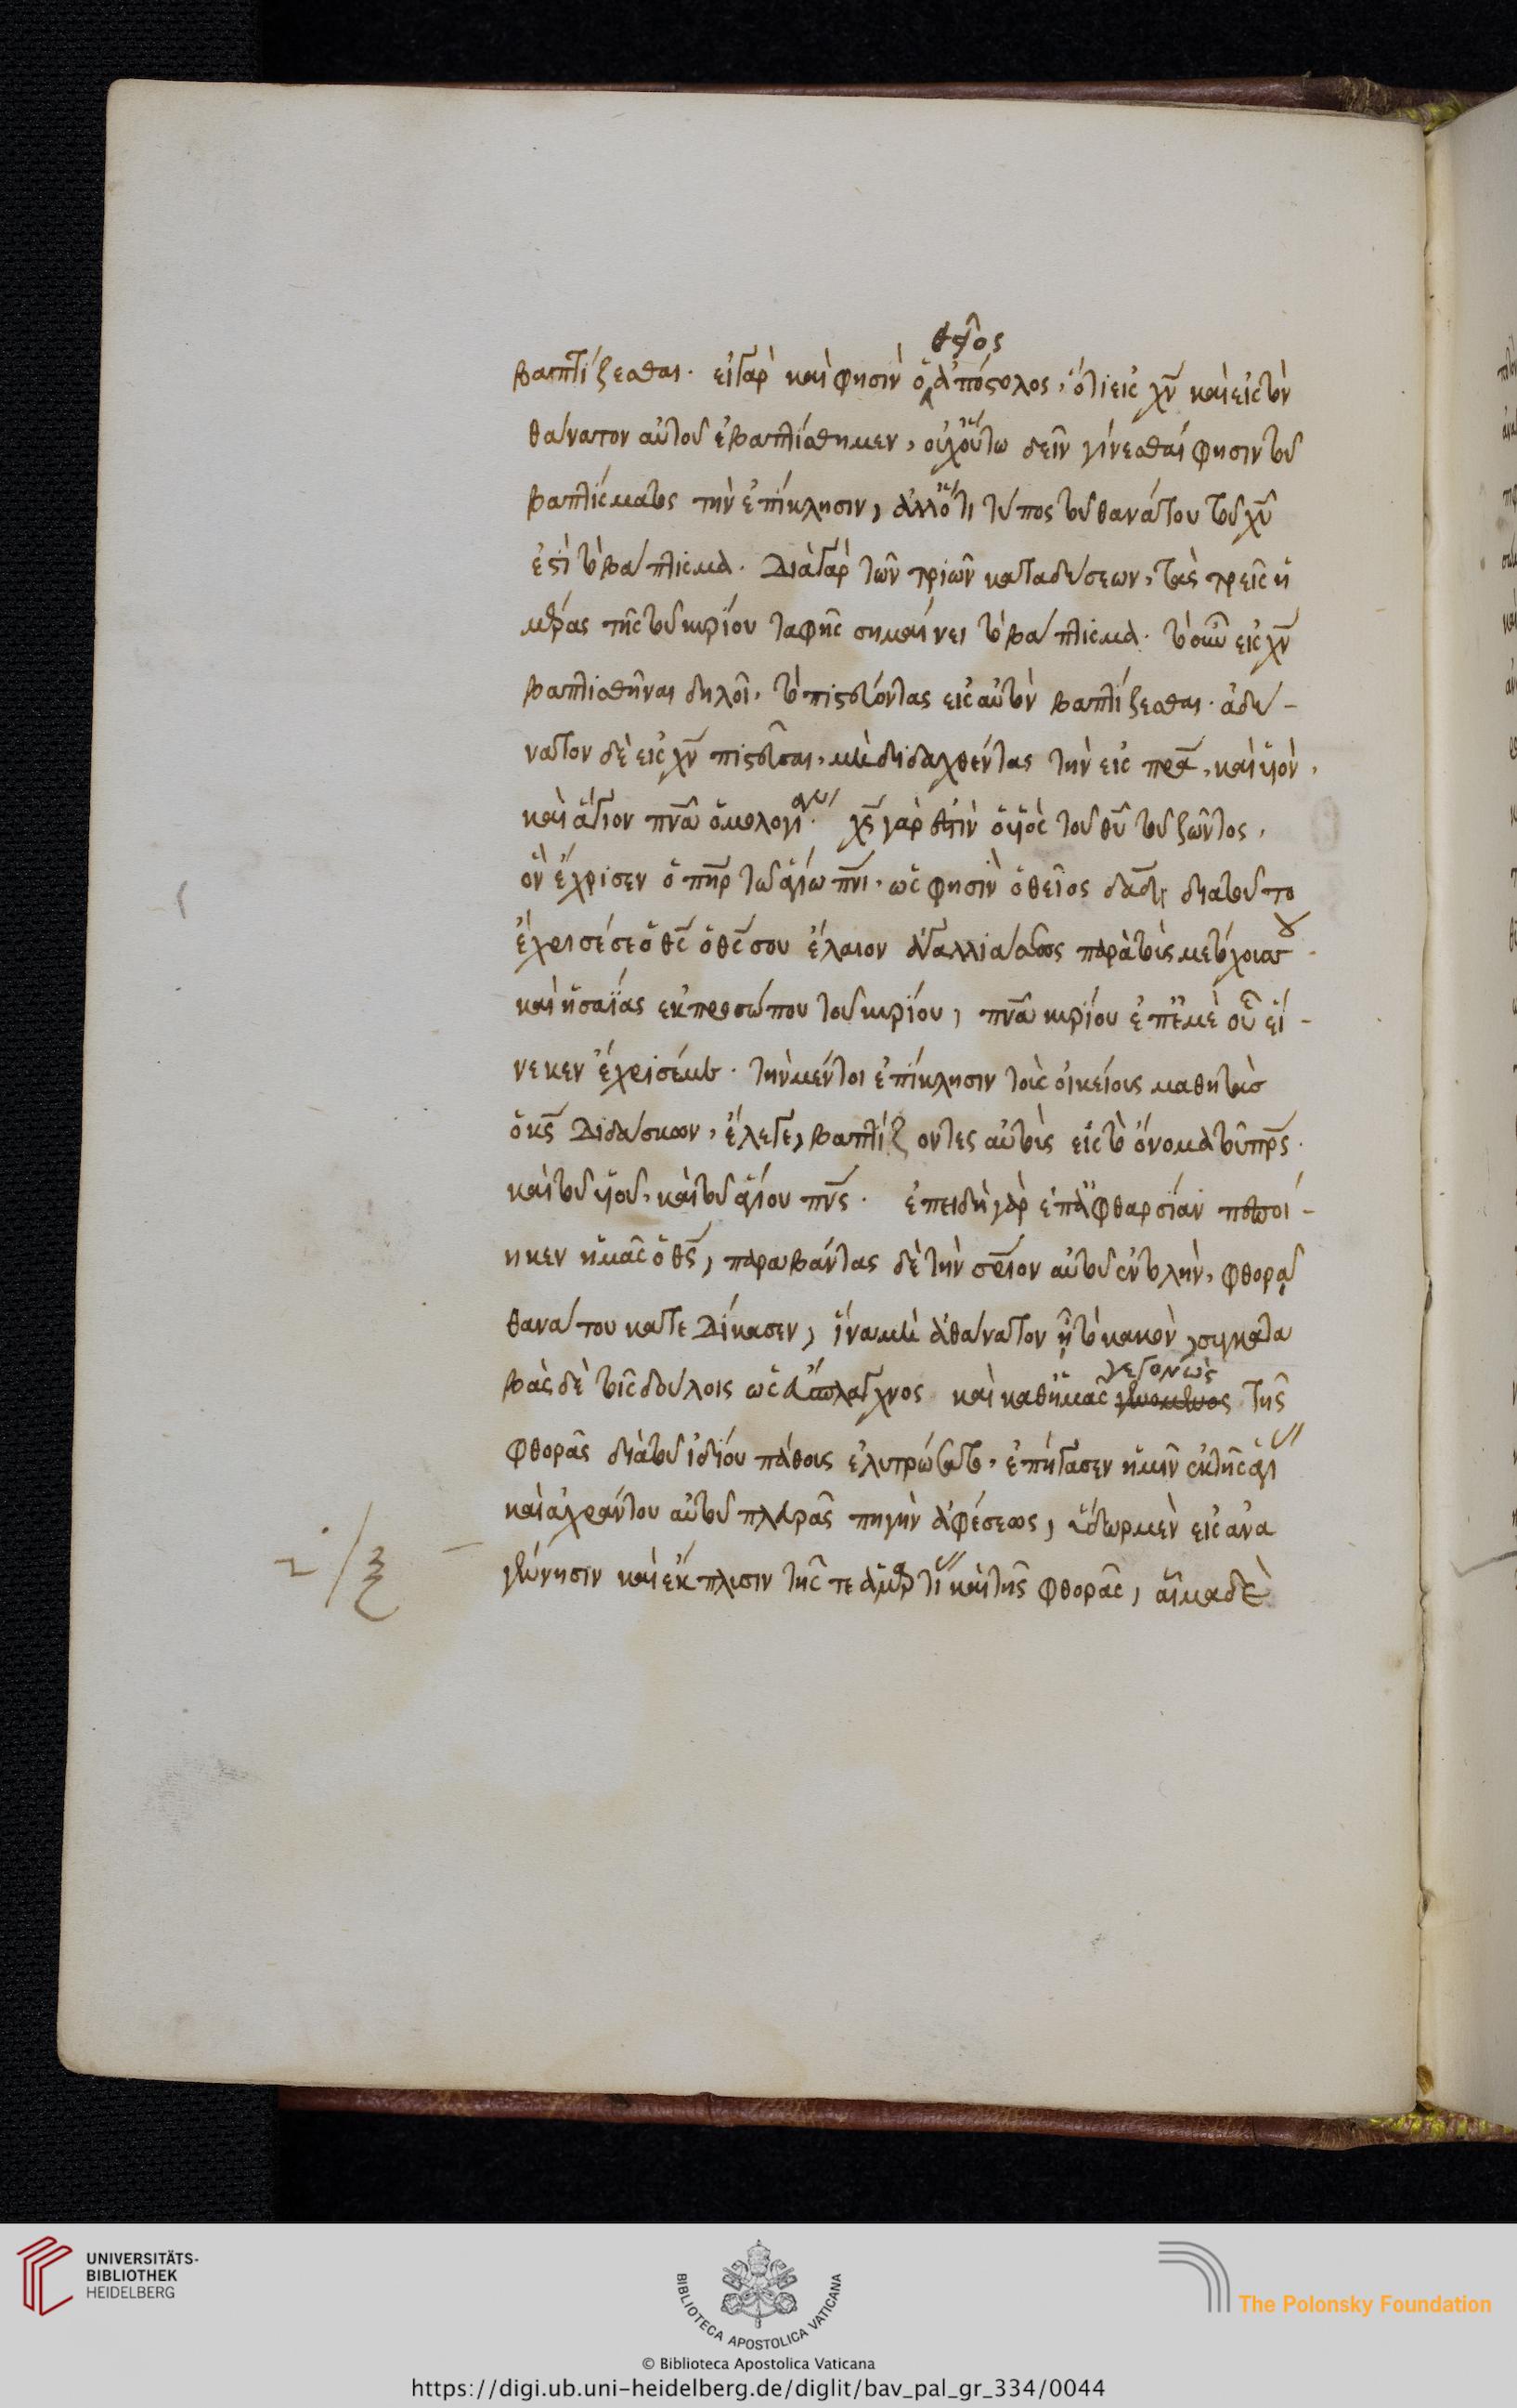 θεῖος
βαπτίζεσθαι. εἰ γὰρ καὶ φησὶν ὁ ἀπόστολος, ὅτι εἰς χν καὶ εἰς τὸν
θάνατον αὐτοῦ ἐβαπτίσθημεν, οὐχ οὕτω δεῖν γίνεσθαί φησιν τοῦ
βαπτίσματος τὴν ἐπίκλησιν, ἀλλ ὅτι τύπος τοῦ θανάτου τοῦ χυ
ἐστὶ τὸ βάπτισμα. Διὰ γὰρ τῶν τριῶν καταδύσεων, τὰς τρεῖς ἡ
μέρας τῆς τοῦ κυρίου ταφῆς σημαίνει τὸ βάπτισμα. τὸ οὖν εἰς χν
βαπτισθῆναι δηλοῖ, τὸ πιστεύοντας εἰς αὐτὸν βαπτίζεσθαι. ἀδύ-
νατον δὲ εἰς χν πιστεῦσαι, μὴ διδαχθέντας τὴν εἰς πρα, καὶ υἱὸν,
καὶ ἅγιον πνα ὁμολογίαν. χς γάρ ἐστιν ὁ υἱὸς τοῦ θυ τοῦ ζῶντος,
ὃν ἔχρισεν ὁ πηρ τῶ ἁγίω πνι. ὡς φησὶν ὁ θεῖος δαδ, διὰ τοῦτο
ἔχρισέ σε ὁ θς ὁ θς σου ἔλαιον ἀγαλλιάσεως παρὰ τοὺς μετόχους σου
καὶ ἡσαΐας ἐκ προσώπου τοῦ κυρίου, πνα κυρίου ἐπ ἐμὲ οὗ εἵ-
νεκεν ἔχρισέ με. τὴν μέντοι ἐπίκλησιν τοὺς οἰκείους μαθητὰς
ὁ κς Διδάσκων, ἔλεγε, βαπτίζοντες αὐτοὺς εἰς τὸ ὄνομα τοῦ πρς.
καὶ τοῦ υἱοῦ, καὶ τοῦ ἁγίου πνς. ἐπειδὴ γὰρ ἐπ ἀφθαρσίαν πεποί-
ηκεν ἡμᾶς ὁ θς, παραβάντας δὲ τὴν σριον αὐτοῦ ἐντολὴν, φθορᾷ
θανάτου κατεΔίκασεν, ἵνα μὴ ἀθάνατον ᾖ τὸ κακὸν, συγκατα
γεγονὼς
βὰς δὲ τοῖς δούλοις ὡς εὔσπλαγχνος καὶ καθ ἡμᾶς γενόμενος τῆς
φθορᾶς διὰ τοῦ ἰδίου πάθους ἐλυτρώσατο. ἐπήγασεν ἡμῖν ἐκ τῆς ἁγί
καὶ ἀχράντου αὐτοῦ πλευρᾶς πηγὴν ἀφέσεως, ὕδωρ μὲν εἰς ἀνα
γέννησιν καὶ ἔκπλυσιν τῆς τε ἁμαρτί καὶ τῆς φθορᾶς, αἷμα δὲ
UNIVERSITÄTS-
BIBLIOTHEK
HEIDELBERG
BIBLIOTECA APOSTOLICA VATICANA
The Polonsky Foundation
© Biblioteca Apostolica Vaticana
https://digi.ub.uni-heidelberg.de/diglit/bav_pal_gr_334/0044